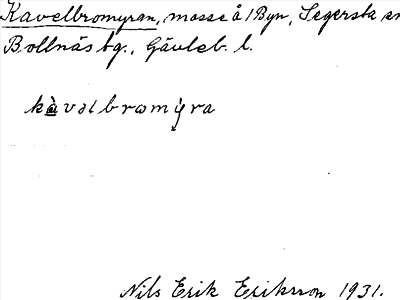 Kavelbromyran, mosse å 1 Byn, Segersta sn
Bollnäs tg., Gävleb. l.
kàvəlbromy̆ra
Nils Erik Eriksson 1931.